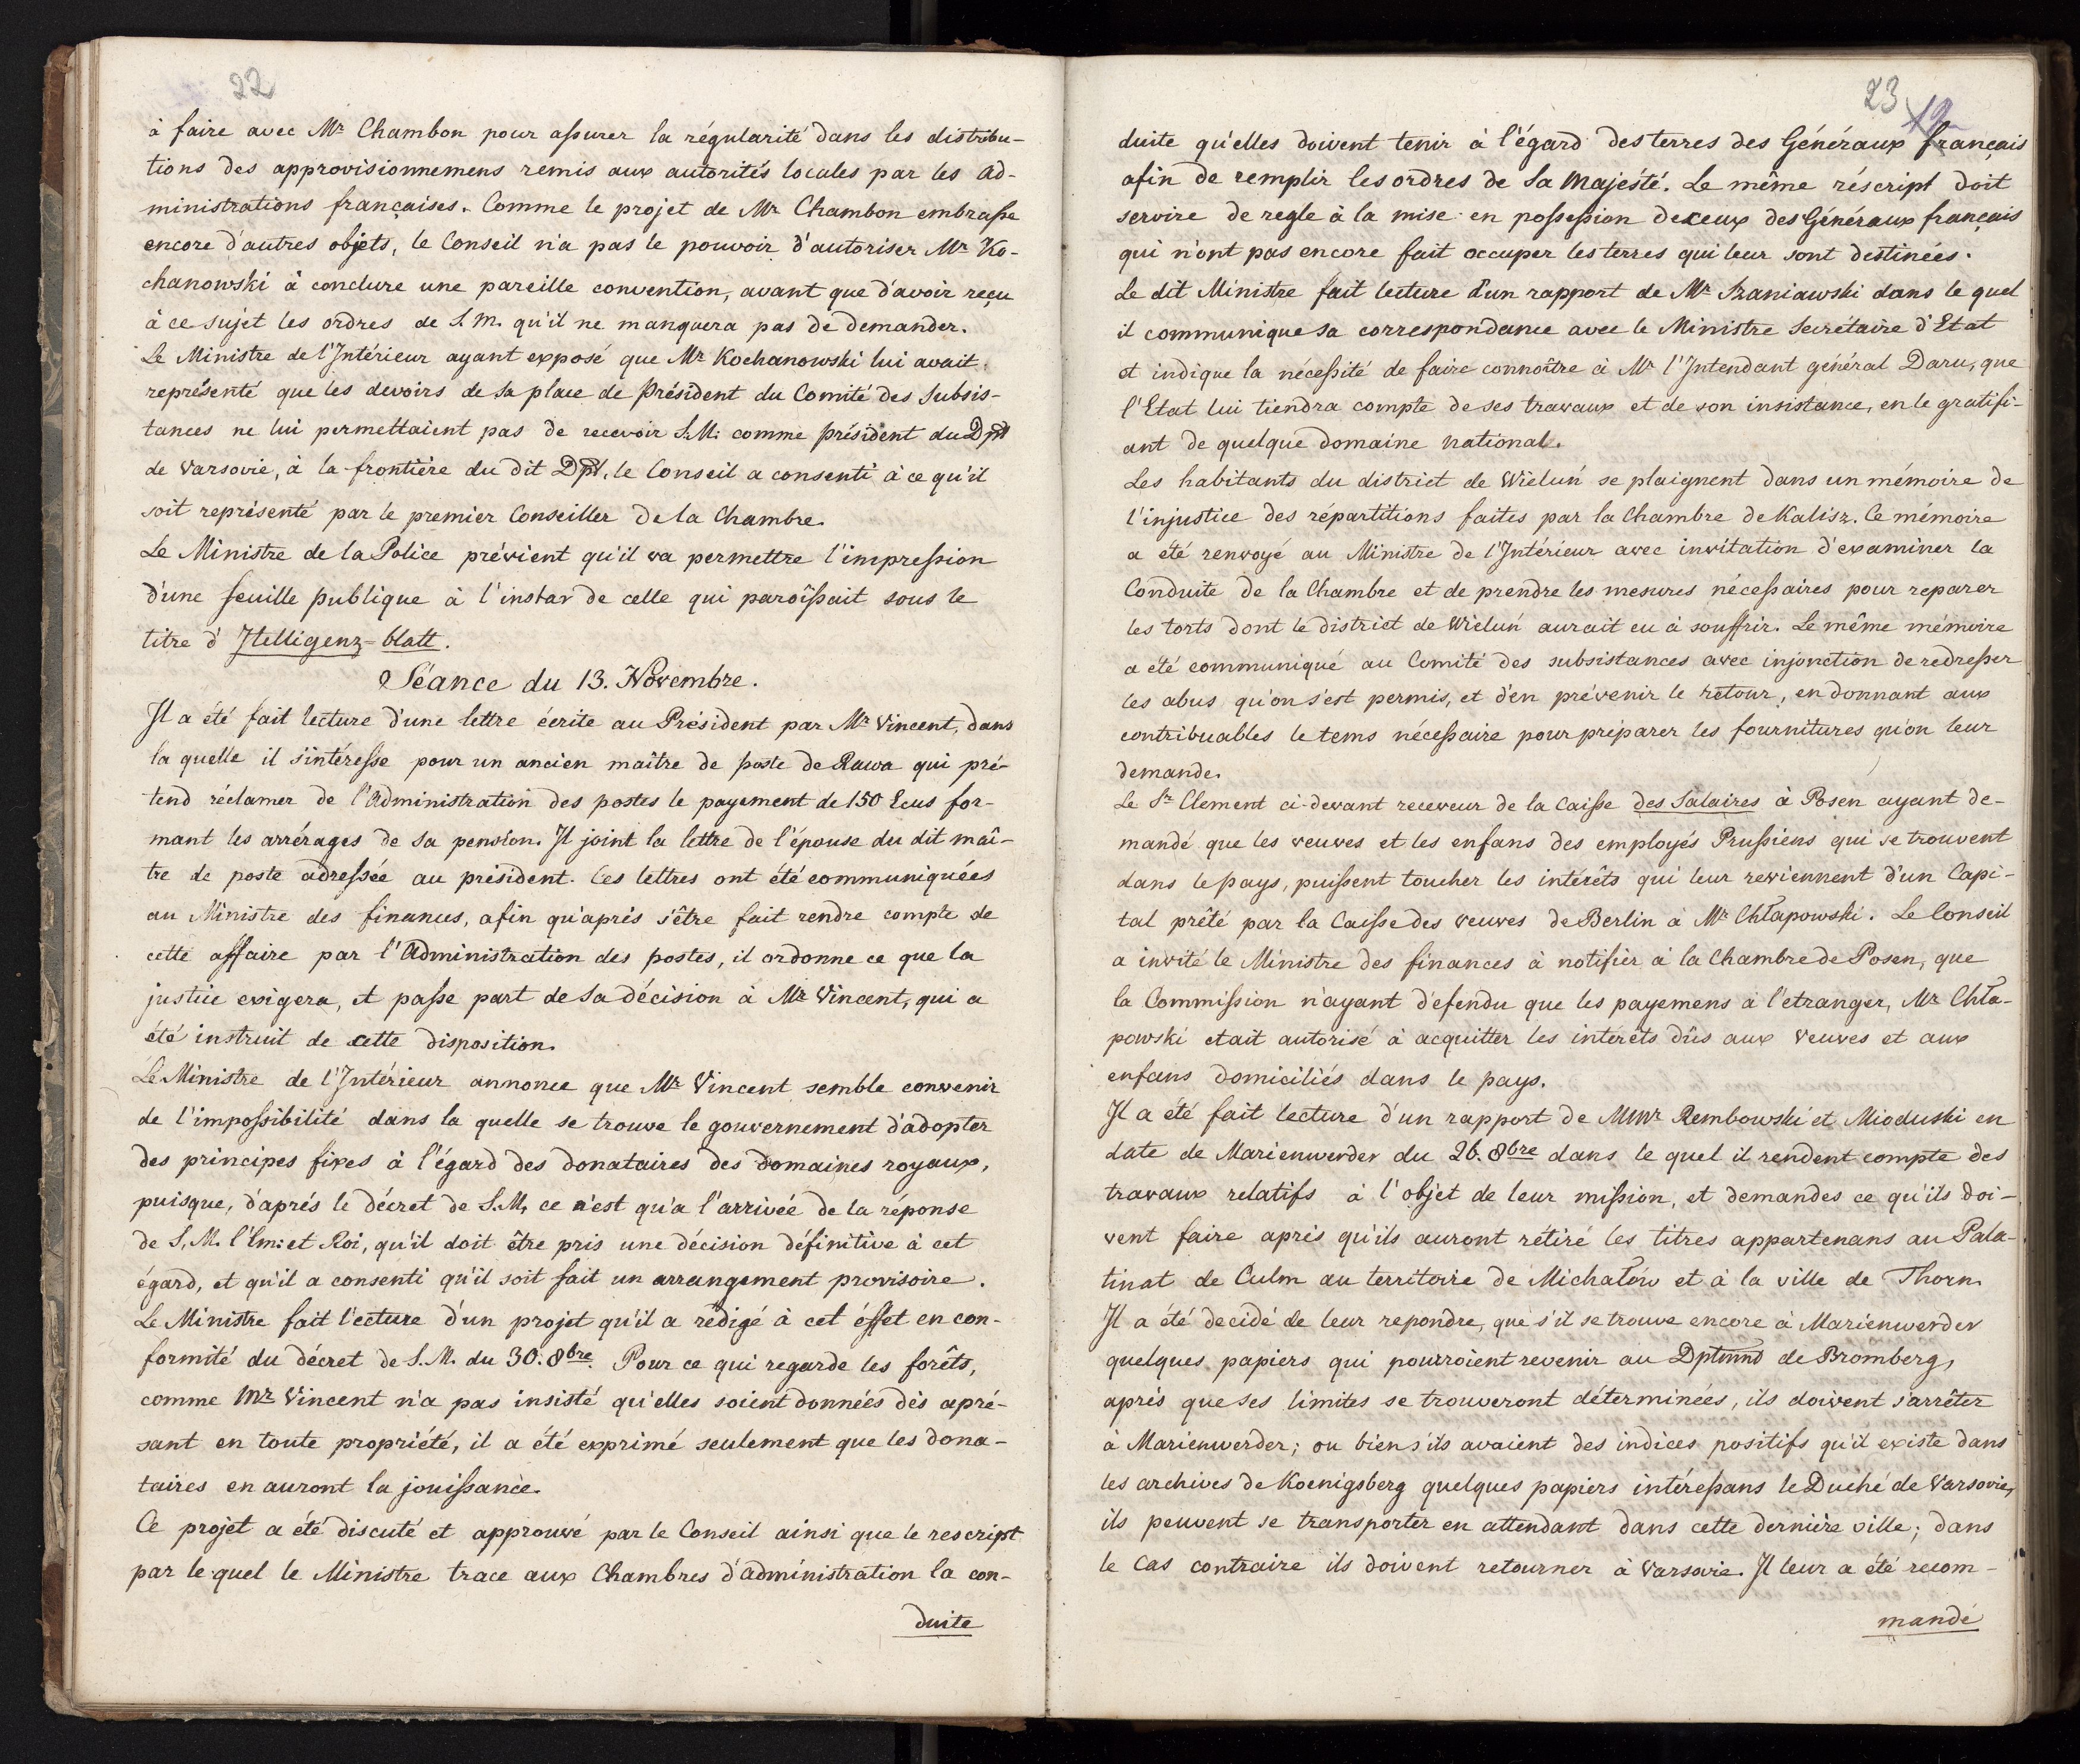 22
à faire avec Mr Chambon pour assurer la régularité dans les distribu-
tions des approvisionnemens remis aux autorités locales par les ad-
ministrations françaises. Comme le projet de Mr Chambon embrasse
encore d'autres objets, le Conseil n'a pas le pouvoir d'autoriser Mr Ko-
chanowski à conclure une pareille convention, avant que d'avoir reçu
à ce sujet les ordres de S.M. qu'il ne manquera pas de demander.
Le Ministre de l'Intérieur ayant exposé que Mr Kochanowski lui avait
représenté que les devoirs de sa place de Président du Comité des Subsis-
tances ne lui permettaient pas de recevoir S.M. comme président du Dpt
de Varsovie, à la frontière du dit Dpt, le Conseil a consenti à ce qu'il
soit représenté par le premier Conseiller de la Chambre.
Le Ministre de la Police prévient qu'il va permettre l'impression
d'une feuille publique à l'instar de celle qui paroîssait sous le
titre d'Itelligenz-blatt.
Séance du 13. Novembre.
Il a été fait lecture d'une lettre écrite au Président par Mr Vincent, dans
la quelle il s'intéresse pour un ancien maître de poste de Rawa qui pré-
tend réclamer de l'Administration des postes le payement de 150 Ecus for-
mant les arrérages de sa pension. Il joint la lettre de l'épouse du dit maî-
tre de poste adressée au président. Ces lettres ont été communiquées
au Ministre des finances, afin qu'aprés s'être fait rendre compte de
cette affaire par l'Administration des postes, il ordonne ce que la
justice exigera, et passe part de sa décision à Mr Vincent, qui a
été instruit de cette disposition.
Le Ministre de l'Intérieur annonce que Mr Vincent semble convenir
de l'impossibilité dans la quelle se trouve le gouvernement d'adopter
des principes fixes à l'égard des donataires des domaines royaux,
puisque, d'aprés le décret de S.M, ce n'est qu'a l'arrivée de la réponse
de S, M. l'Em: et Roi, qu'il doit être pris une décision définitive à cet
égard, et qu'il a consenti qu'il soit fait un arrangement provisoire.
Le Ministre fait l'ecture d'un projet qu'il a rédigé à cet éffet en con-
formité du décret de S.M. du 30. 8bre. Pour ce qui regarde les forêts,
comme Mr Vincent n'a pas insisté qu'elles soient données dès apré-
sant en toute propriété, il a été exprimé seulement que les dona-
taires en auront la jouissance.
Ce projet a été discuté et approuvé par le Conseil ainsi que le rescript
par le quel le Ministre trace aux Chambres d'administration la con-
duite
23
12
duite qu'elles doivent tenir à l'égard des terres des Généraux français
afin de remplir les ordres de Sa Majesté. Le même réscript doit
servire de regle à la mise en possession de ceux des Généraux français
qui n'ont pas encore fait occuper les terres qui leur sont destinées.
Le dit Ministre fait lecture d'un rapport de Mr Szaniawski dans le quel
il communique sa correspondance avec le Ministre Secrétaire d'Etat
et indique la nécessité de faire connoître à Mr l'Intendant général Daru, que
l'Etat lui tiendra compte de ses travaux et de son insistance, en le gratifi-
ant de quelque domaine national.
Les habitants du district de Wieluń se plaignent dans un mémoire de
l'injustice des répartitions faites par la Chambre de Kalisz. Ce mémoire
a été renvoyé au Ministre de l'Intérieur avec invitation d'examiner la
Conduite de la Chambre et de prendre les mesures nécessaires pour reparer
les torts dont le district de Wieluń aurait eu à souffrir. Le même mémoire
a été communiqué au Comité des subsistances avec injonction de redresser
les abus qu'on s'est permis, et d'en prévenir le retour, en donnant aux
contribuables le tems necessaire pour préparer les fournitures qu'on leur
demande.
Le Sr Clement ci-devant receveur de la Caisse des Salaires à Posen ayant de-
mandé que les veuves et les enfans des employés Prussiens qui se trouvent
dans le pays, puissent toucher les intérêts qui leur reviennent d'un Capi-
tal prêté par la Caisse des veuves de Berlin à Mr Chłapowski. Le Conseil
a invité le Ministre des finances à notifier à la Chambre de Posen, que
la Commission n'ayant défendu que les payemens à l'etranger, Mr Chła-
powski etait autorisé à acquitter les intérêts dûs aux veuves et aux
enfans domiciliés dans le pays.
Il a été fait lecture d'un rapport de MMr Rembowski et Mioduski en
date de Marienwerder du 26. 8bre dans le quel il rendent compte des
travaux relatifs à l'objet de leur mission, et demandes ce qu'ils doi-
vent faire aprés qu'ils auront rétiré les titres appartenans au Pala-
tinat de Culm au territoire de Michałów et à la ville de Thorn.
Il a été decidé de leur repondre, que s'il se trouve encore à Marienwerder
quelques papiers qui pourroient revenir au de Bromberg,
aprés que ses limites se trouveront déterminées, ils doivent s'arrêter
à Marienwerder; ou bien s'ils avaient des indices positifs qu'il existe dans
les archives de Koenigsberg quelques papiers intéressans le Duché de Varsovie,
ils peuvent se transporter en attendant dans cette dernière ville; dans
le cas contraire ils doivent retourner à Varsovie. Il leur a été recom-
mandé